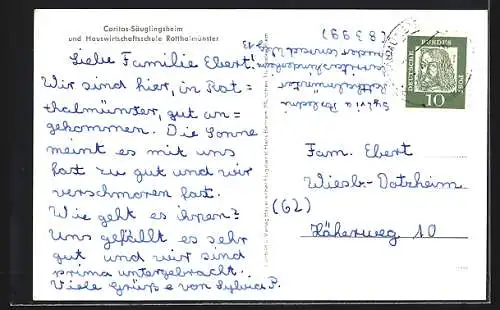 Caritas-Säuglingsheim
und Hauswirtschaftsschule Rotthalmünster
Liebe Familie Ebert!
Wir sind hier, in Rot=
thalmünster, gut an=
gekommen. Die Sonne
meint es mit uns
fast zu gut und wir
verschmoren fast.
Wie geht es ihnen?
Uns gefällt es sehr
gut und wir sind
prima untergebracht.
Viele Grüße von Sylvia P.
Sylvia
Rotthalmünster
(8399)
DEUTSCHE
BUNDES
POST
10
Fam. Ebert
Wiesb-Dotzheim
(62)
Höherweg 10